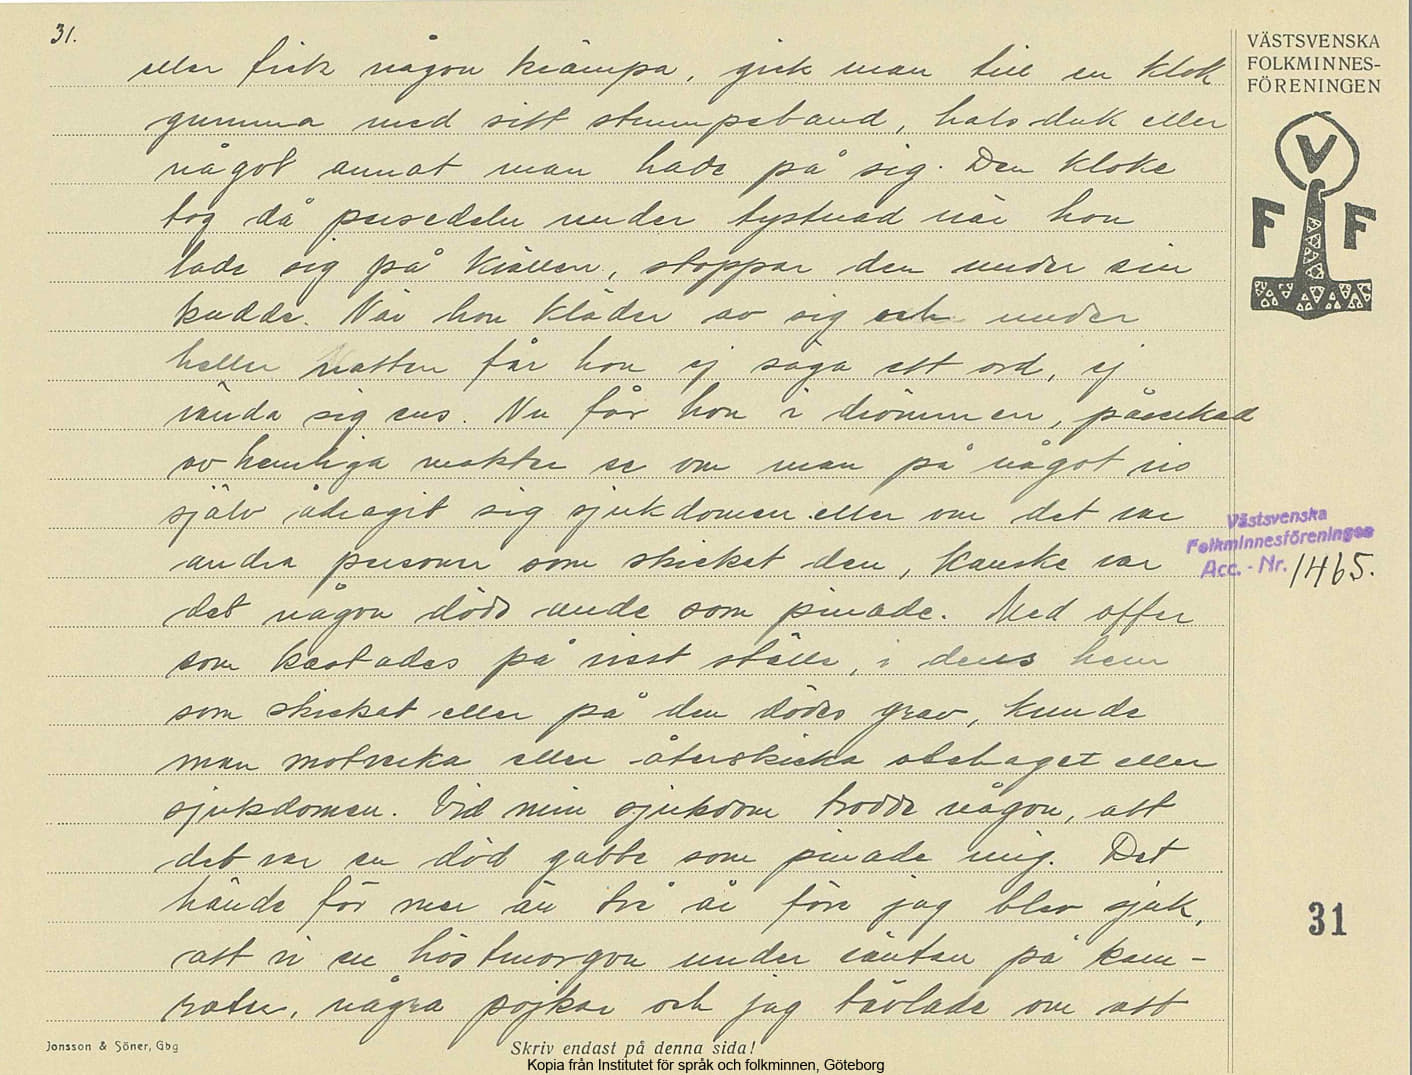 31.
eller fick någon krämpa, gick man till en klok
gumma med sitt strumpeband, halsduk eller
något annat man hade på sig. Den kloke
tog då persedeln under tystnad när hon
lade sig på kvällen, stoppar den under sin
kudde. När hon kläder av sig och under
heller natten får hon ej säga ett ord, ej
vända sig ens. Nu får hon i drömmen, påverkad
av hemliga makter se om man på något vis
själv ådragit sig sjukdomen eller om det var
andra personer som skickat den, kanske var
det någon död ande som pinade. Med offer
som kastades på visst ställe, i dens hem
som skickat eller på den dödes grav, kunde
man motverka eller återskicka obehaget eller
sjukdomen. Vid min sjukdom trodde någon, att
det var en död gubbe som pinade mig. Det
hände för mer än två år före jag blev sjuk,
att vi en höstmorgon under väntan på kam-
rater, några pojkar och jag tävlade om att
VÄSTSVENSKA
FOLKMINNES-
FÖRENINGEN
V
F F
Västsvenska
Folkminnesföreningen
Acc. - Nr. 1465.
31
Jonsson & Söner, Gbg
Skriv endast på denna sida!
Kopia från Institutet för språk och folkminnen, Göteborg